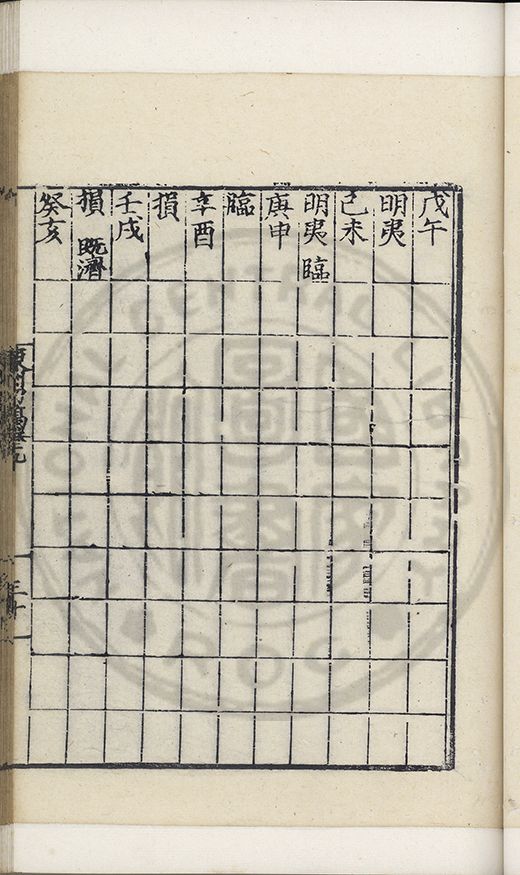 戊午
明夷
己未
明夷 臨
庚申
臨
辛酉
損
壬戌
損 既濟
癸亥